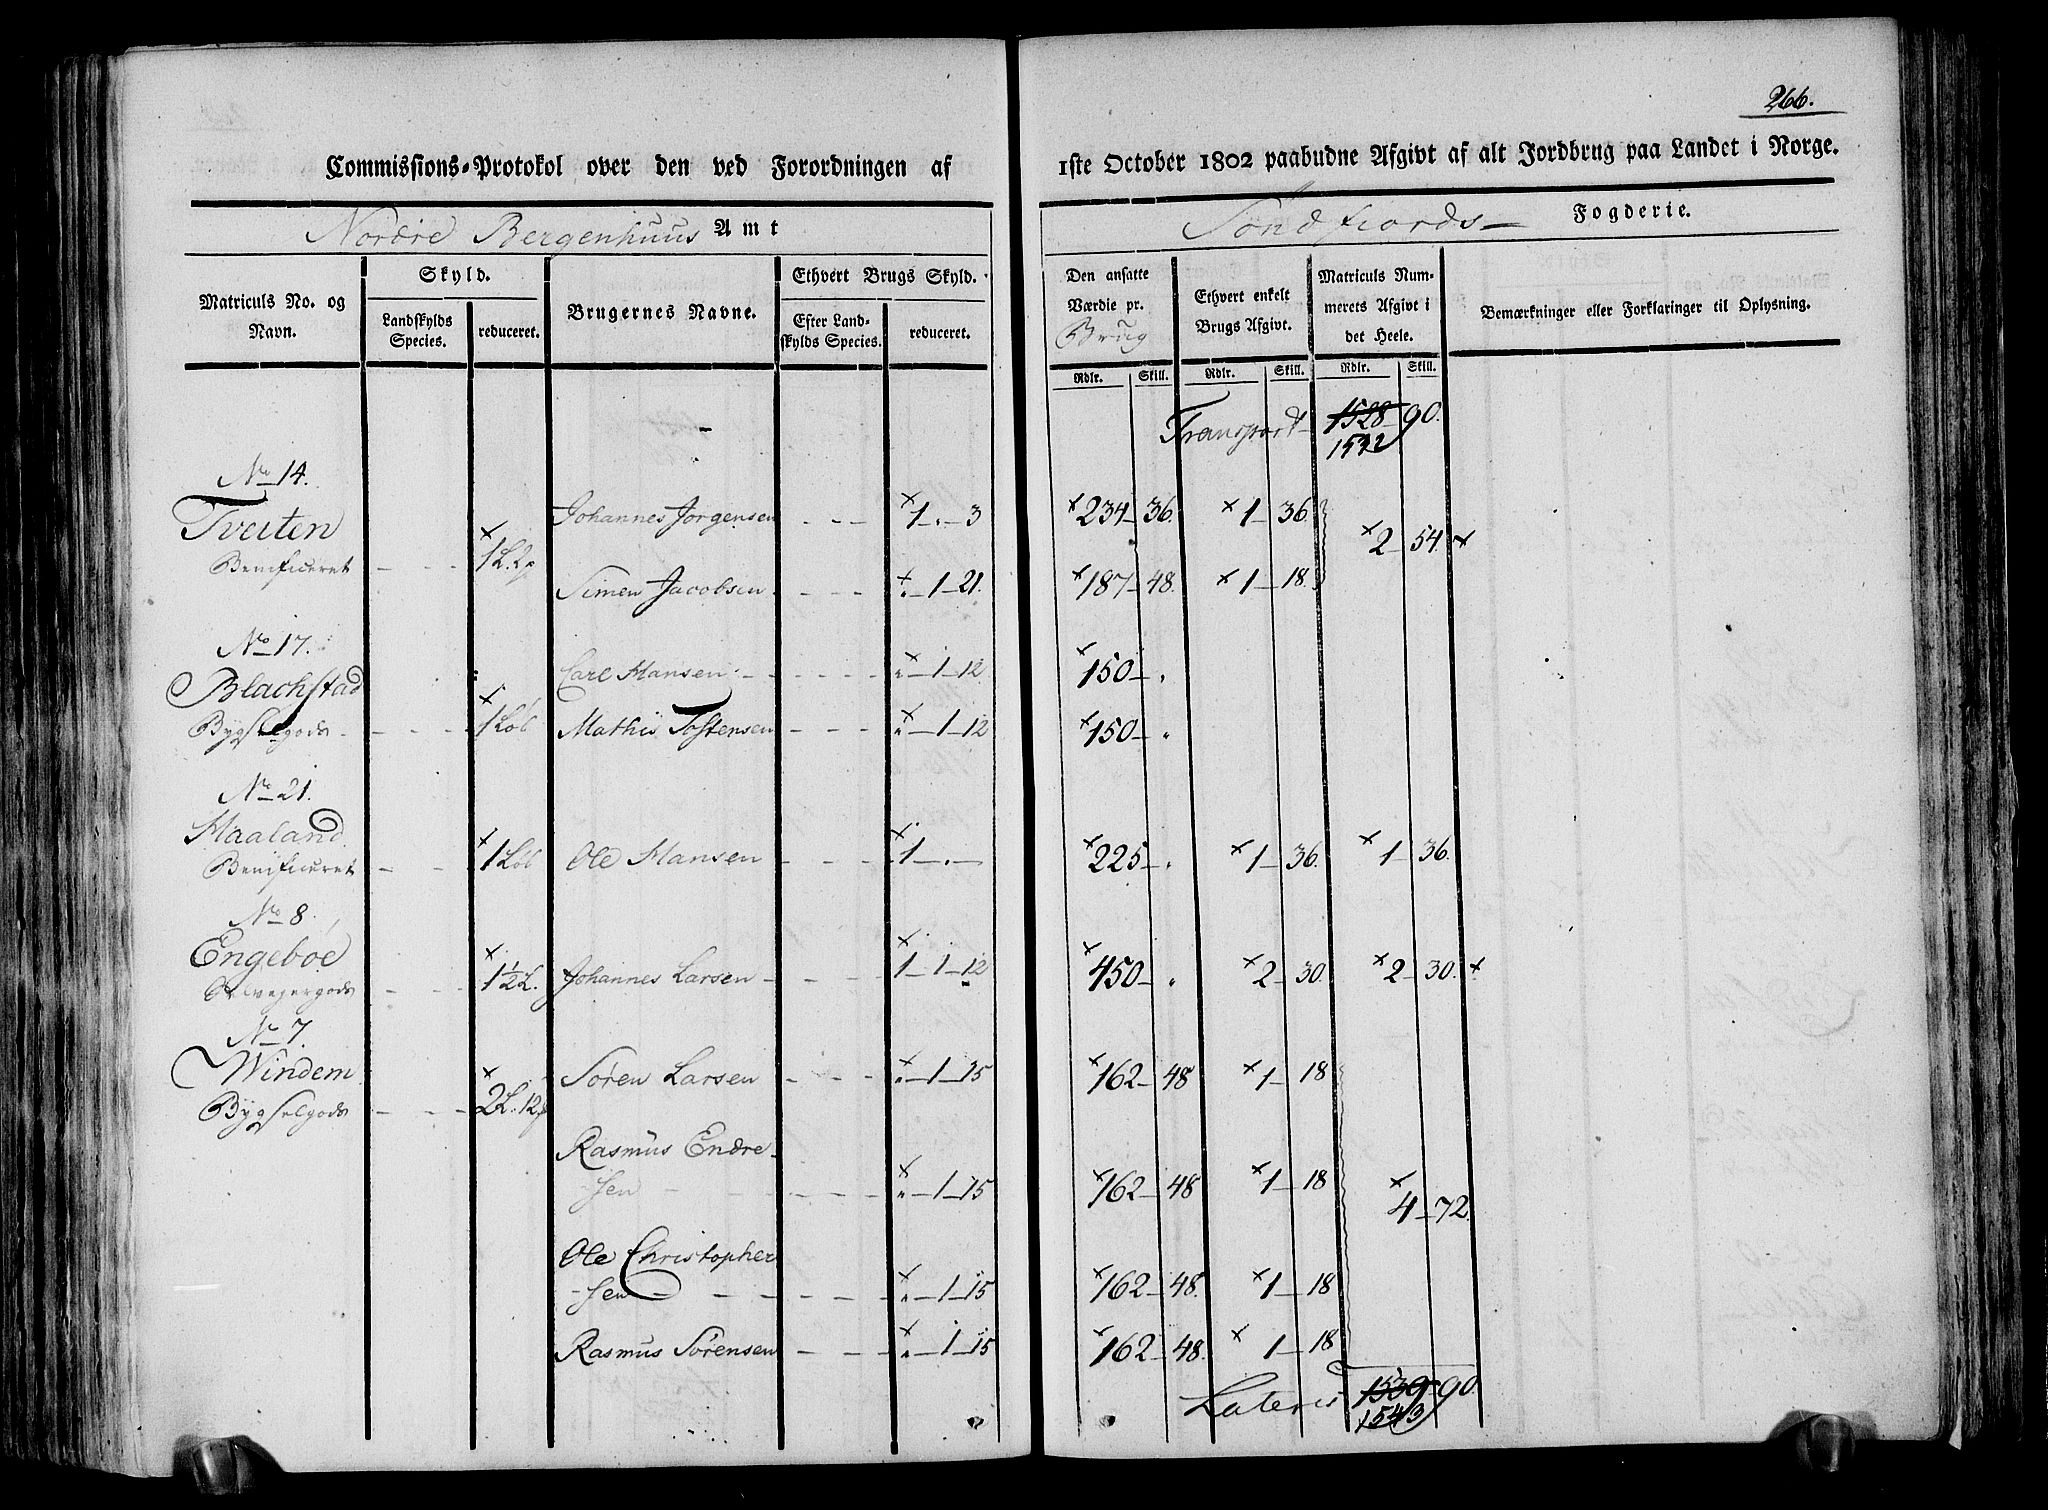 266.
Commissions-Protokol over den ved Forordningen af 1ste October 1802 paabudne Afgivt af alt Jordbrug paa Landet i Norge.
Nordre Bergenhuus Amt Söndfiords Fogderie.
Matriculs No. og Navn.
Skyld.
Landskylds Species.
reduceret.
Brugernes Navne.
Ethvert Brugs Skyld.
Efter Landskylds Species.
reduceret.
Den ansatte Værdie pr. Brug
Ethvert enkelt Brugs Afgivt.
Matriculs Nummerets Afgivt i det Heele.
Bemærkninger eller Forklaringer til Oplysning.
Rdlr. Skill. Rdlr. Skill. Rdlr. Skill.
Transport 1528 90.
1532
No 14.
Tveiten Johannes Jorgensen - - - × 1 . 3 × 234 36. × 1 36.
Benificeret - - - × 1 L. 2 p × 2 54. ×
Simen Jacobsen - - - × " 1 21. × 187 48. × 1 18.
No 17.
Blachstad Carl Hansen - - - × " 1 12 × 150 "
Bygselgods - - - × 1 Løb Mathis Tostensen - - - × " 1 12 × 150 "
No 21.
Haaland
Benificeret - - - × 1 Løb Ole Hansen - - - × 1 . - × 225 " × 1 36. × 1 36.
No 8.
Engeboe
Odvejergods - - - × 1½ L. Johannes Larsen - - - × 1 1 12 × 450 " × 2 30. × 2 30. ×
No 7.
Windem Søren Larsen - - - × " 1 15 × 162 48 × 1 18
Bygselgods - - - × 2 L. 12 p
Rasmus Endre-
sen - - - × " 1 15 × 162 48 × 1 18 × 4 72.
Ole Christopher
-sen - - - × " 1 15 × 162 48. × 1 18
Rasmus Sørensen - - - × " 1 15 × 162 48. × 1 18
Lateris 1539 90.
1543